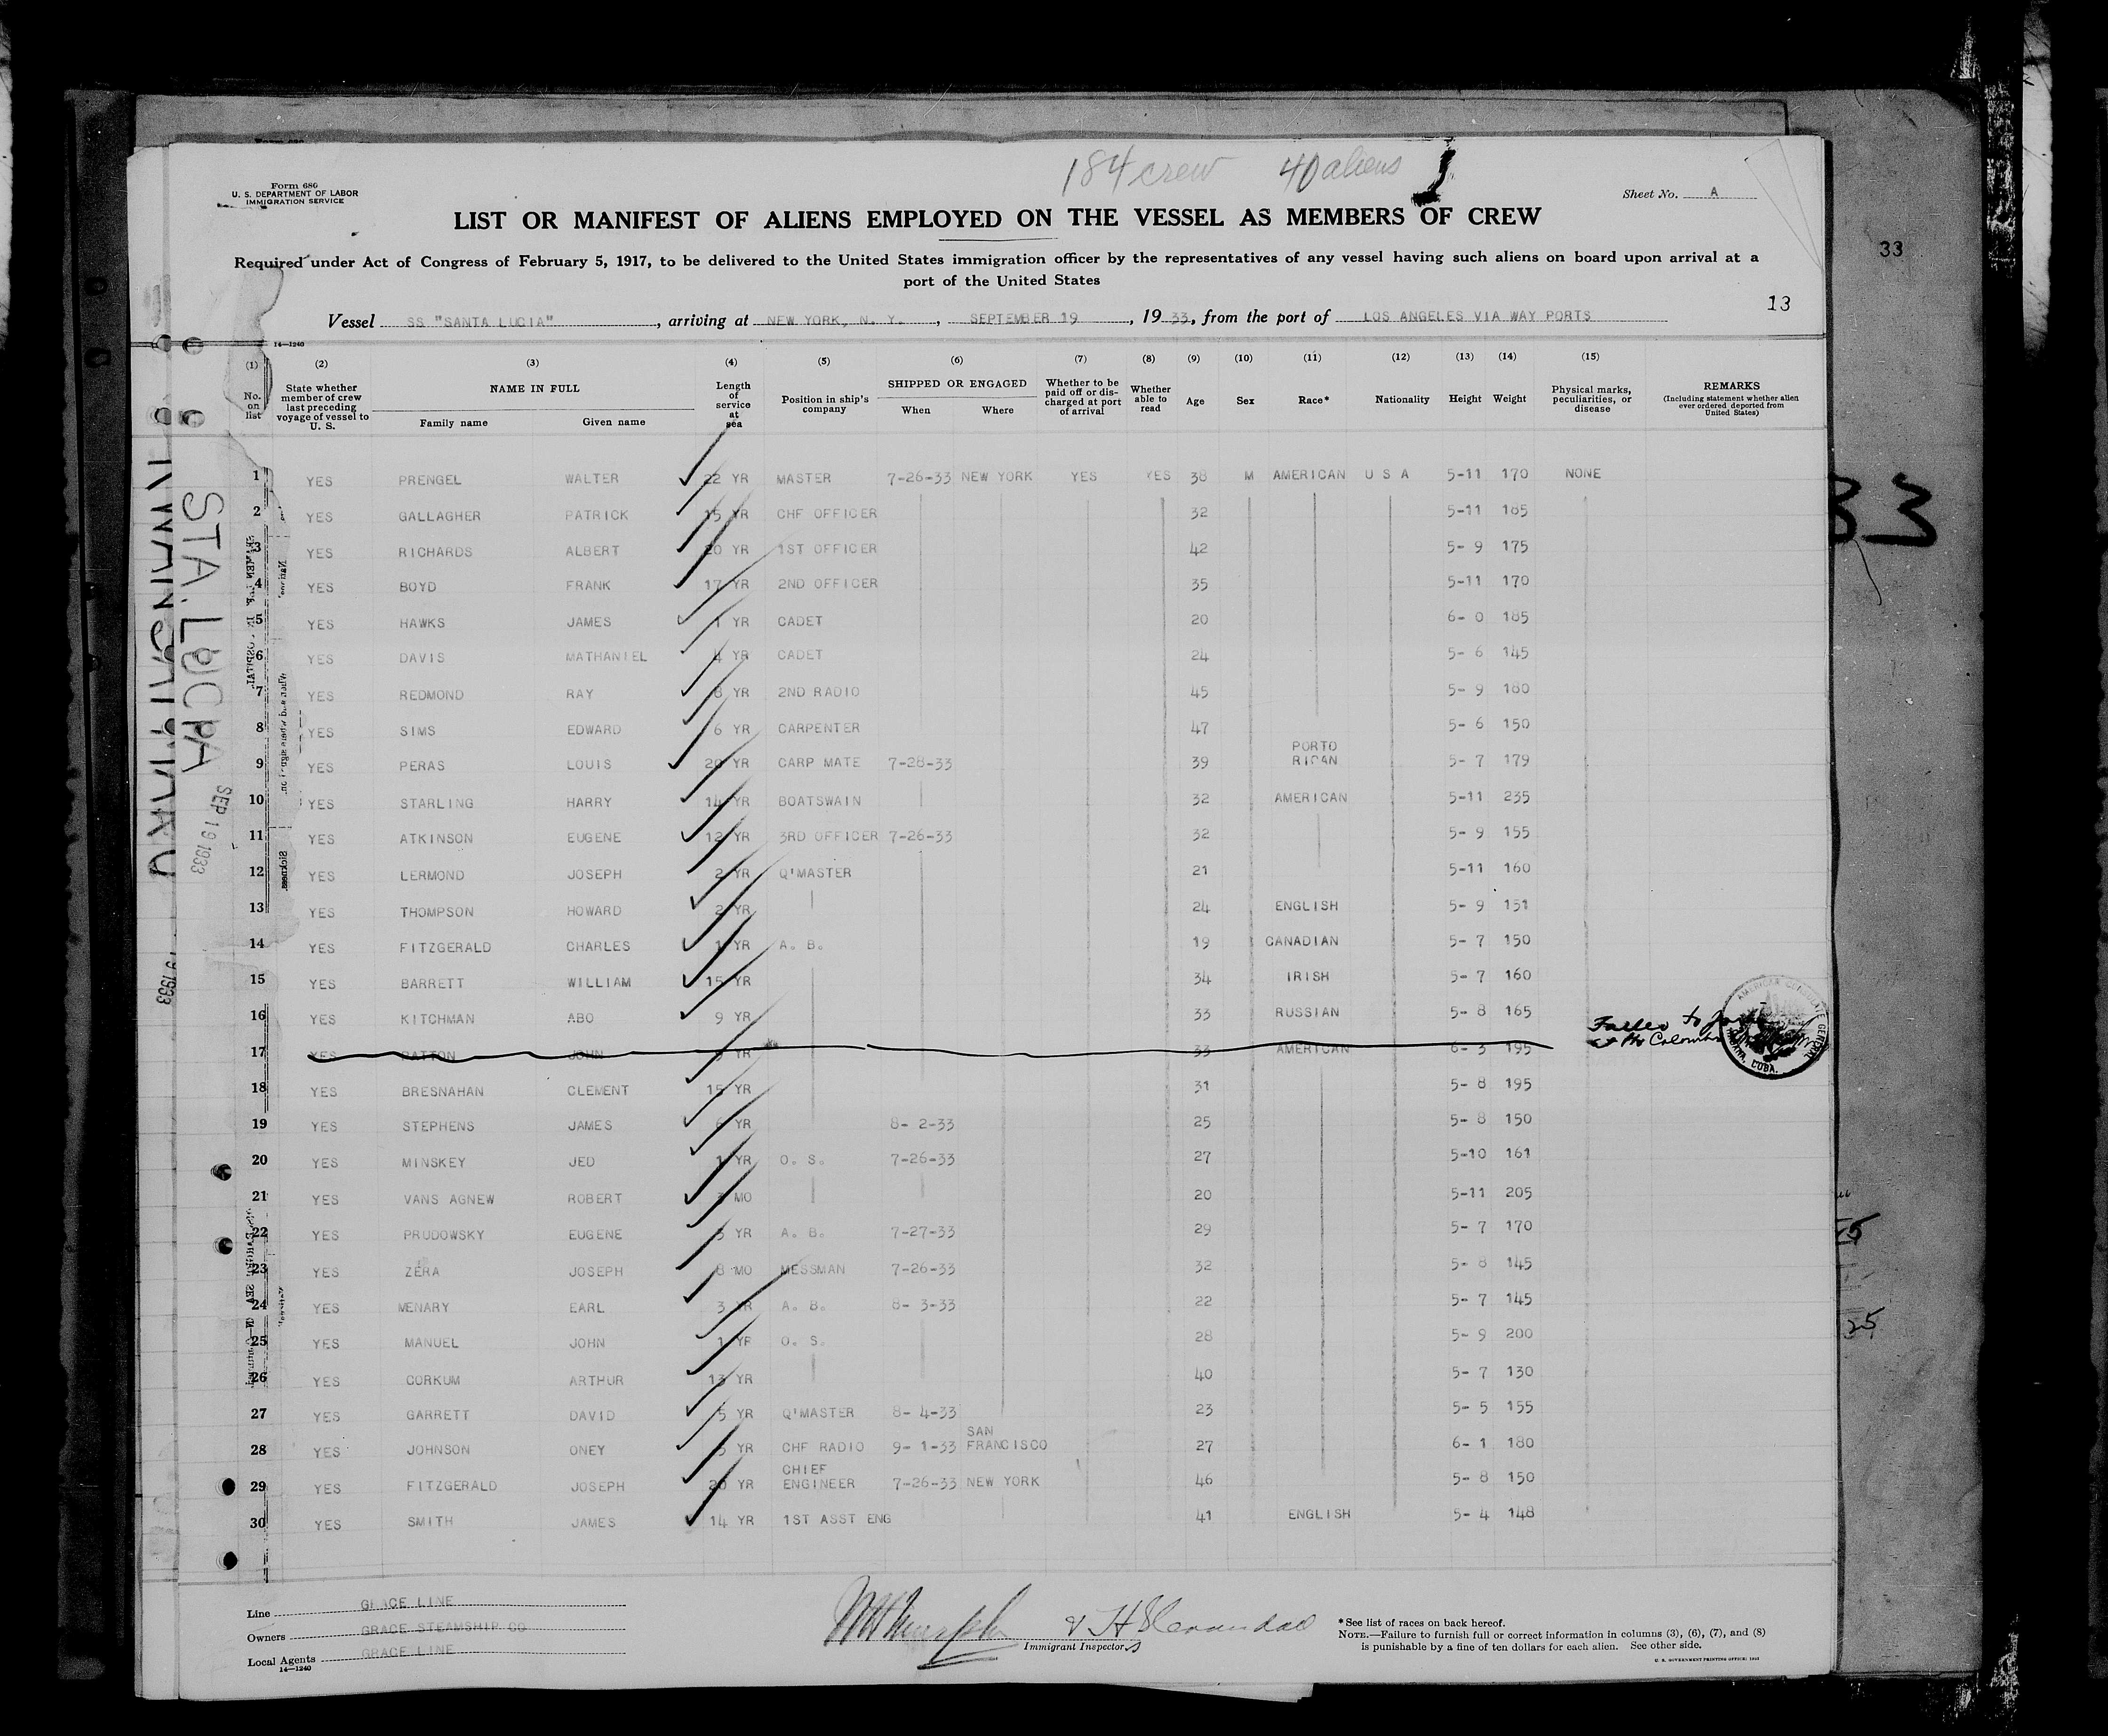 184 crew 40 aliens
Form 680
U. S. DEPARTMENT OF LABOR
IMMIGRATION SERVICE
Sheet No. A
LIST OR MANIFEST OF ALIENS EMPLOYED ON THE VESSEL AS MEMBERS OF CREW
Required under Act of Congress of February 5, 1917, to be delivered to the United States immigration officer by the representatives of any vessel having such aliens on board upon arrival at a
port of the United States
33
13
Vessel SS "SANTA LUCIA", arriving at NEW YORK, N. Y., SEPTEMBER 19, 1933, from the port of LOS ANGELES VIA WAY PORTS
14—1240
(1) No. on list
(2) State whether member of crew last preceding voyage of vessel to U. S.
(3) NAME IN FULL Family name Given name
(4) Length of service at sea
(5) Position in ship's company
(6) SHIPPED OR ENGAGED When Where
(7) Whether to be paid off or discharged at port of arrival
(8) Whether able to read
(9) Age
(10) Sex
(11) Race*
(12) Nationality
(13) Height
(14) Weight
(15) Physical marks, peculiarities, or disease
REMARKS (Including statement whether alien ever ordered deported from United States)
1 YES PRENGEL WALTER 22 YR MASTER 7-26-33 NEW YORK YES YES 38 M AMERICAN U S A 5-11 170 NONE
2 YES GALLAGHER PATRICK 15 YR CHF OFFICER 32 5-11 185
3 YES RICHARDS ALBERT 20 YR 1ST OFFICER 42 5- 9 175
4 YES BOYD FRANK 17 YR 2ND OFFICER 35 5-11 170
5 YES HAWKS JAMES 1 YR CADET 20 6- 0 185
6 YES DAVIS MATHANIEL 4 YR CADET 24 5- 6 145
7 YES REDMOND RAY 8 YR 2ND RADIO 45 5- 9 180
8 YES SIMS EDWARD 6 YR CARPENTER 47 5- 6 150
9 YES PERAS LOUIS 20 YR CARP MATE 7-28-33 39 PORTO RICAN 5- 7 179
10 YES STARLING HARRY 14 YR BOATSWAIN 32 AMERICAN 5-11 235
11 YES ATKINSON EUGENE 12 YR 3RD OFFICER 7-26-33 32 5- 9 155
12 YES LERMOND JOSEPH 2 YR Q'MASTER 21 5-11 160
13 YES THOMPSON HOWARD 2 YR 24 ENGLISH 5- 9 151
14 YES FITZGERALD CHARLES 1 YR A. B. 19 CANADIAN 5- 7 150
15 YES BARRETT WILLIAM 15 YR 34 IRISH 5- 7 160
16 YES KITCHMAN ABO 9 YR 33 RUSSIAN 5- 8 165
17 YES BATTON JOHN YR 33 AMERICAN 6- 3 195 Failed to
AMERICAN CONSULATE GENERAL CUBA.
18 YES BRESNAHAN CLEMENT 15 YR 31 5- 8 195
19 YES STEPHENS JAMES 6 YR 8- 2-33 25 5- 8 150
20 YES MINSKEY JED 1 YR O. S. 7-26-33 27 5-10 161
21 YES VANS AGNEW ROBERT 3 MO 20 5-11 205
22 YES PRUDOWSKY EUGENE 5 YR A. B. 7-27-33 29 5- 7 170
23 YES ZERA JOSEPH 8 MO MESSMAN 7-26-33 32 5- 8 145
24 YES MENARY EARL 3 YR A. B. 8- 3-33 22 5- 7 145
25 YES MANUEL JOHN 1 YR O. S. 28 5- 9 200
26 YES CORKUM ARTHUR 13 YR 40 5- 7 130
27 YES GARRETT DAVID 5 YR Q'MASTER 8- 4-33 23 5- 5 155
28 YES JOHNSON ONEY YR CHF RADIO 9- 1-33 SAN FRANCISCO 27 6- 1 180
29 YES FITZGERALD JOSEPH 20 YR CHIEF ENGINEER 7-26-33 NEW YORK 46 5- 8 150
30 YES SMITH JAMES 14 YR 1ST ASST ENG 41 ENGLISH 5- 4 148
STA. LUCIA
SEP 19 1933
Line GRACE LINE
Owners GRACE STEAMSHIP CO
Local Agents GRACE LINE
14—1240
Immigrant Inspectors
*See list of races on back hereof.
NOTE.—Failure to furnish full or correct information in columns (3), (6), (7), and (8)
is punishable by a fine of ten dollars for each alien. See other side.